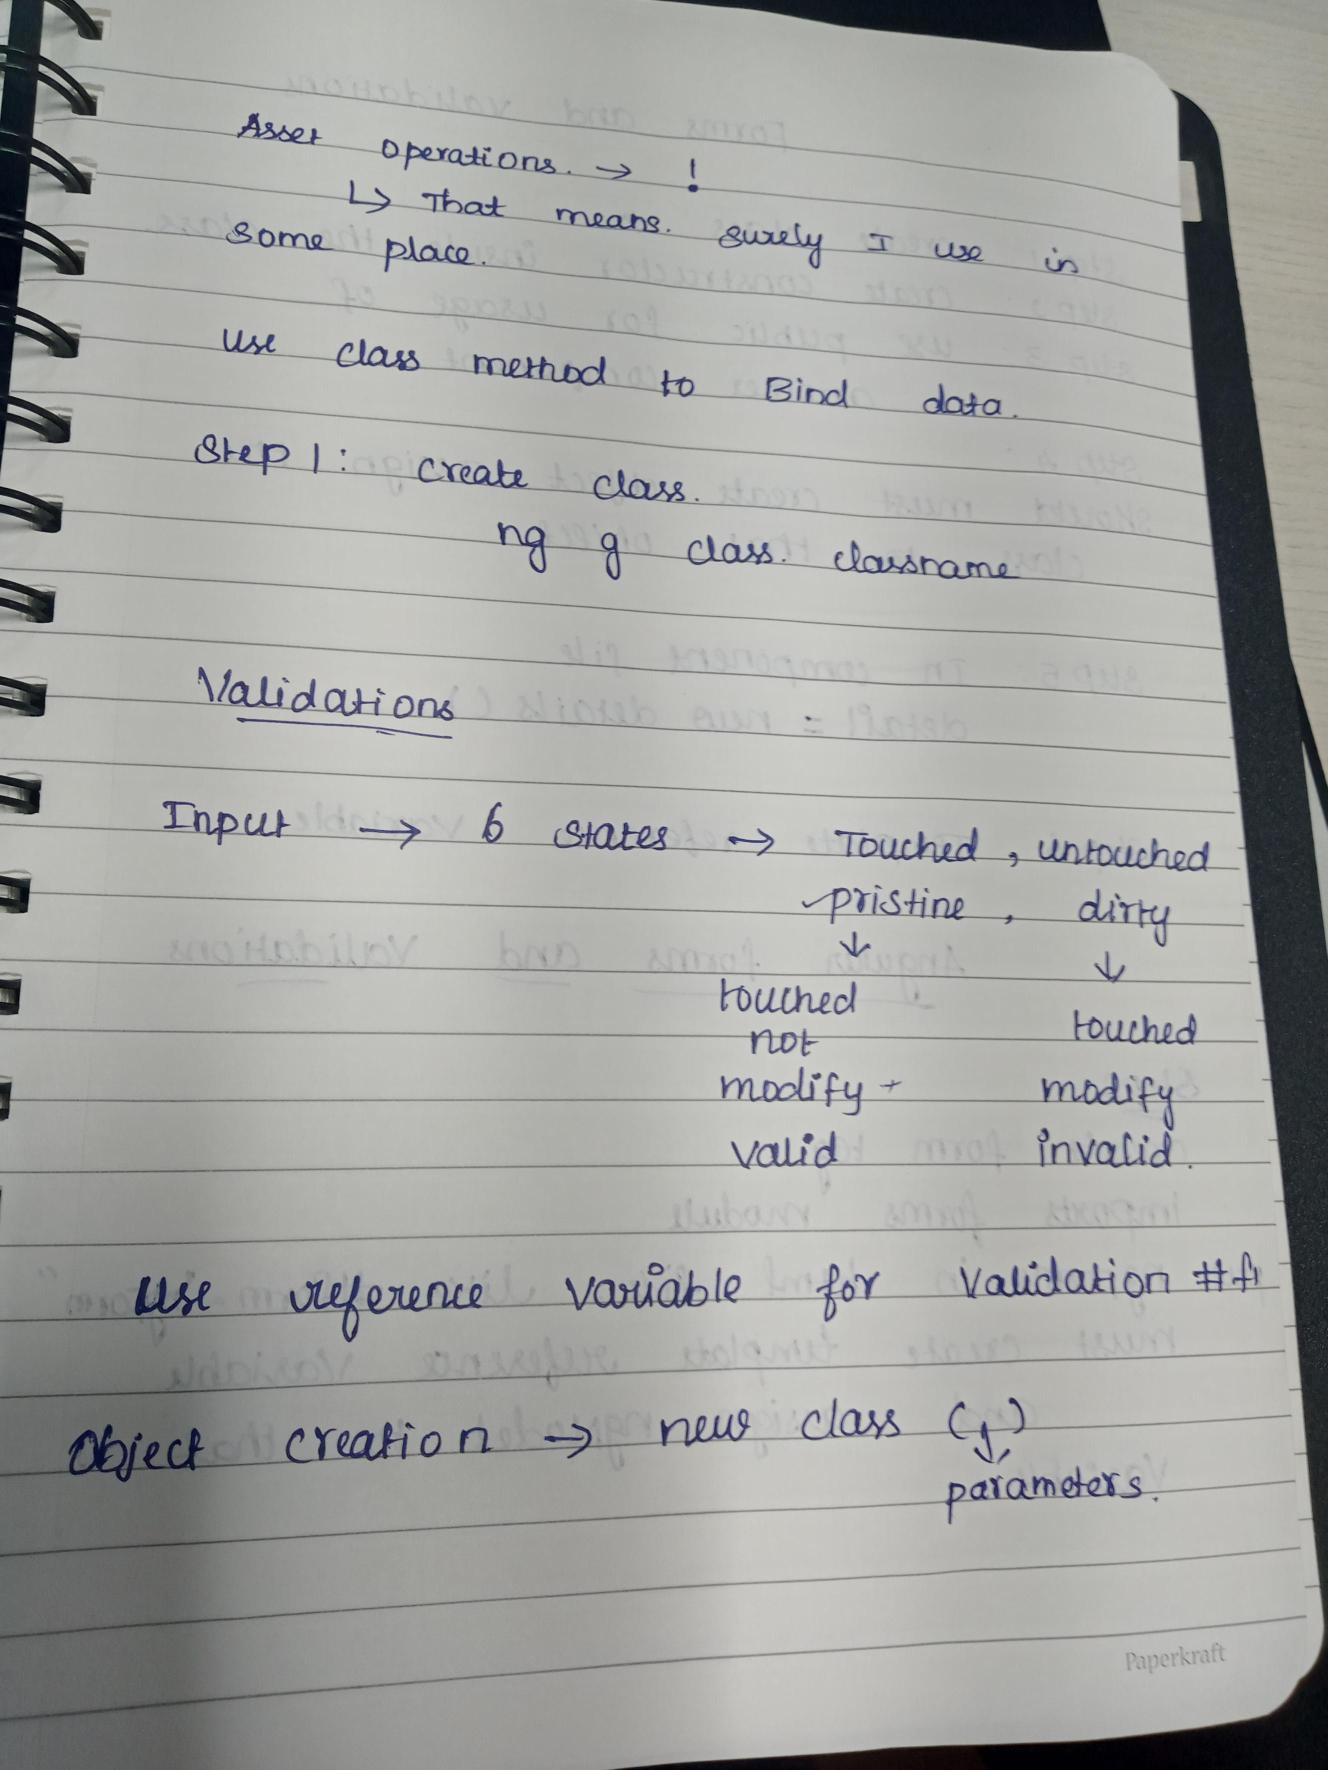 Asset operations. → !
↳ That means. surely I use in
some place.
use class method to Bind data.
Step 1: create class.
ng g class. classname
Validations
Input → 6 states → Touched, untouched
pristine, dirty
↓ ↓
touched touched
not
modify + modify
valid invalid.
use reference variable for validation #f1
Object creation → new class ( )
↓
parameters.
Paperkraft